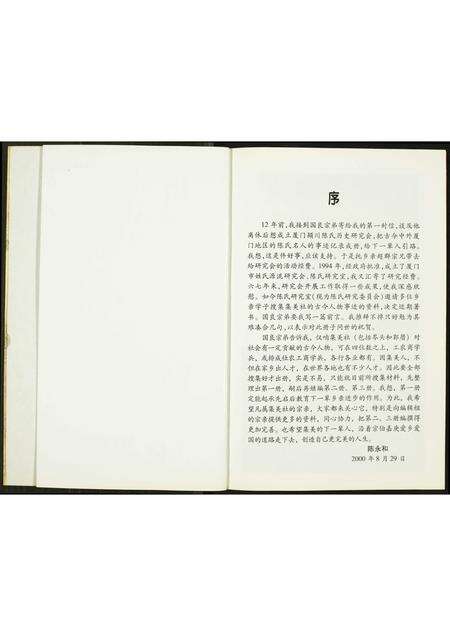 序
12 年前,我接到国良宗弟寄给我的第一封信,谈及他
离休后想成立厦门颍川陈氏历史研究会,把古今中外厦
门地区的陈氏名人的事迹记录成册,给下一辈人引路。
我想,这是件好事,应该支持。于是托乡亲超群宗兄带去
给研究会的活动经费。1994 年,经政府批准,成立了厦门
市姓氏源流研究会,陈氏研究室,我又汇寄了研究经费。
六七年来,研究会开展工作取得一些成果,使我深感欣
慰。如今陈氏研究室(现为陈氏研究委员会)邀请多位乡
亲学子搜集集美社的古今人物事迹的资料,决定近期著
书。国良宗弟要我写一篇前言。我推辞不掉只好勉为其
难凑合几句,以表示对此册子问世的祝贺。
国良宗弟告诉我,仅咱集美社(包括尽头和郭厝)对
社会有一定贡献的古今人物,可在四位数之上,工农商学
兵,或扬或仕农工商学兵,各行各业都有。因集美人,不
但在家乡出人才,在世界各地也有不少人才。因此要全部
搜集好才出册,实是不易,只能就目前所搜集材料,先整
理出第一册,嗣后再续编第二册、第三册。我想,第一册
定能起承先启后教育下一辈乡亲进步的作用。为此,我希
望凡属集美社的宗亲,大家都来关心它,特别是向编辑组
的宗亲提供更多的资料,同心协力,把第二、三册编撰得
更加完善。也希望集美的下一辈人,沿着宗伯嘉庚爱乡爱
国的道路走下去,创造自己更完美的人生。
陈永和
2000 年 8 月 29 日